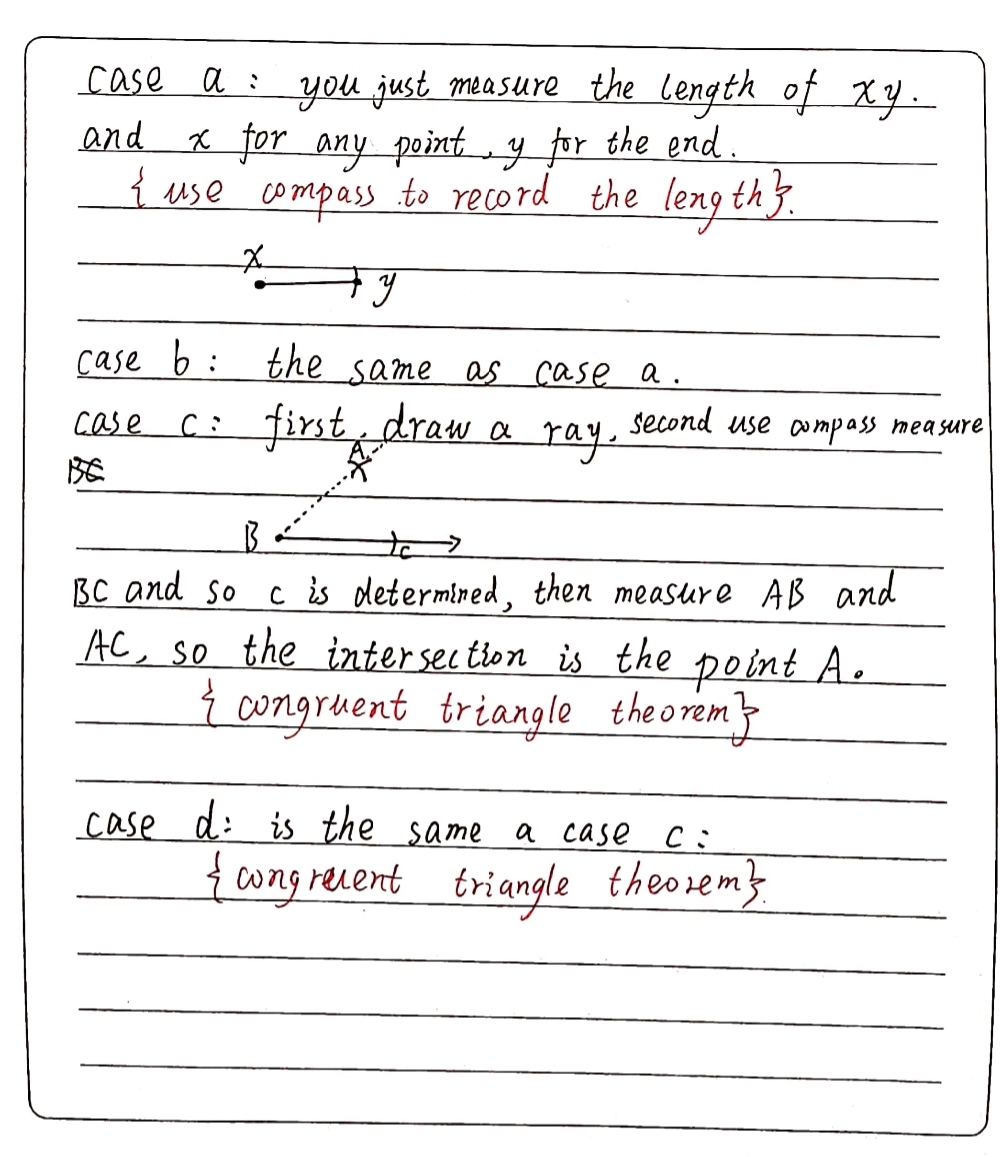 case a : you just measure the length of xy.
and x for any point, y for the end.
{ use compass to record the length}.
x
y
case b : the same as case a.
case c : first, draw a ray, second use compass measure
A
B
c
BC and so c is determined, then measure AB and
AC, so the intersection is the point A.
{ congruent triangle theorem}
case d: is the same a case c :
{ congruent triangle theorem}.